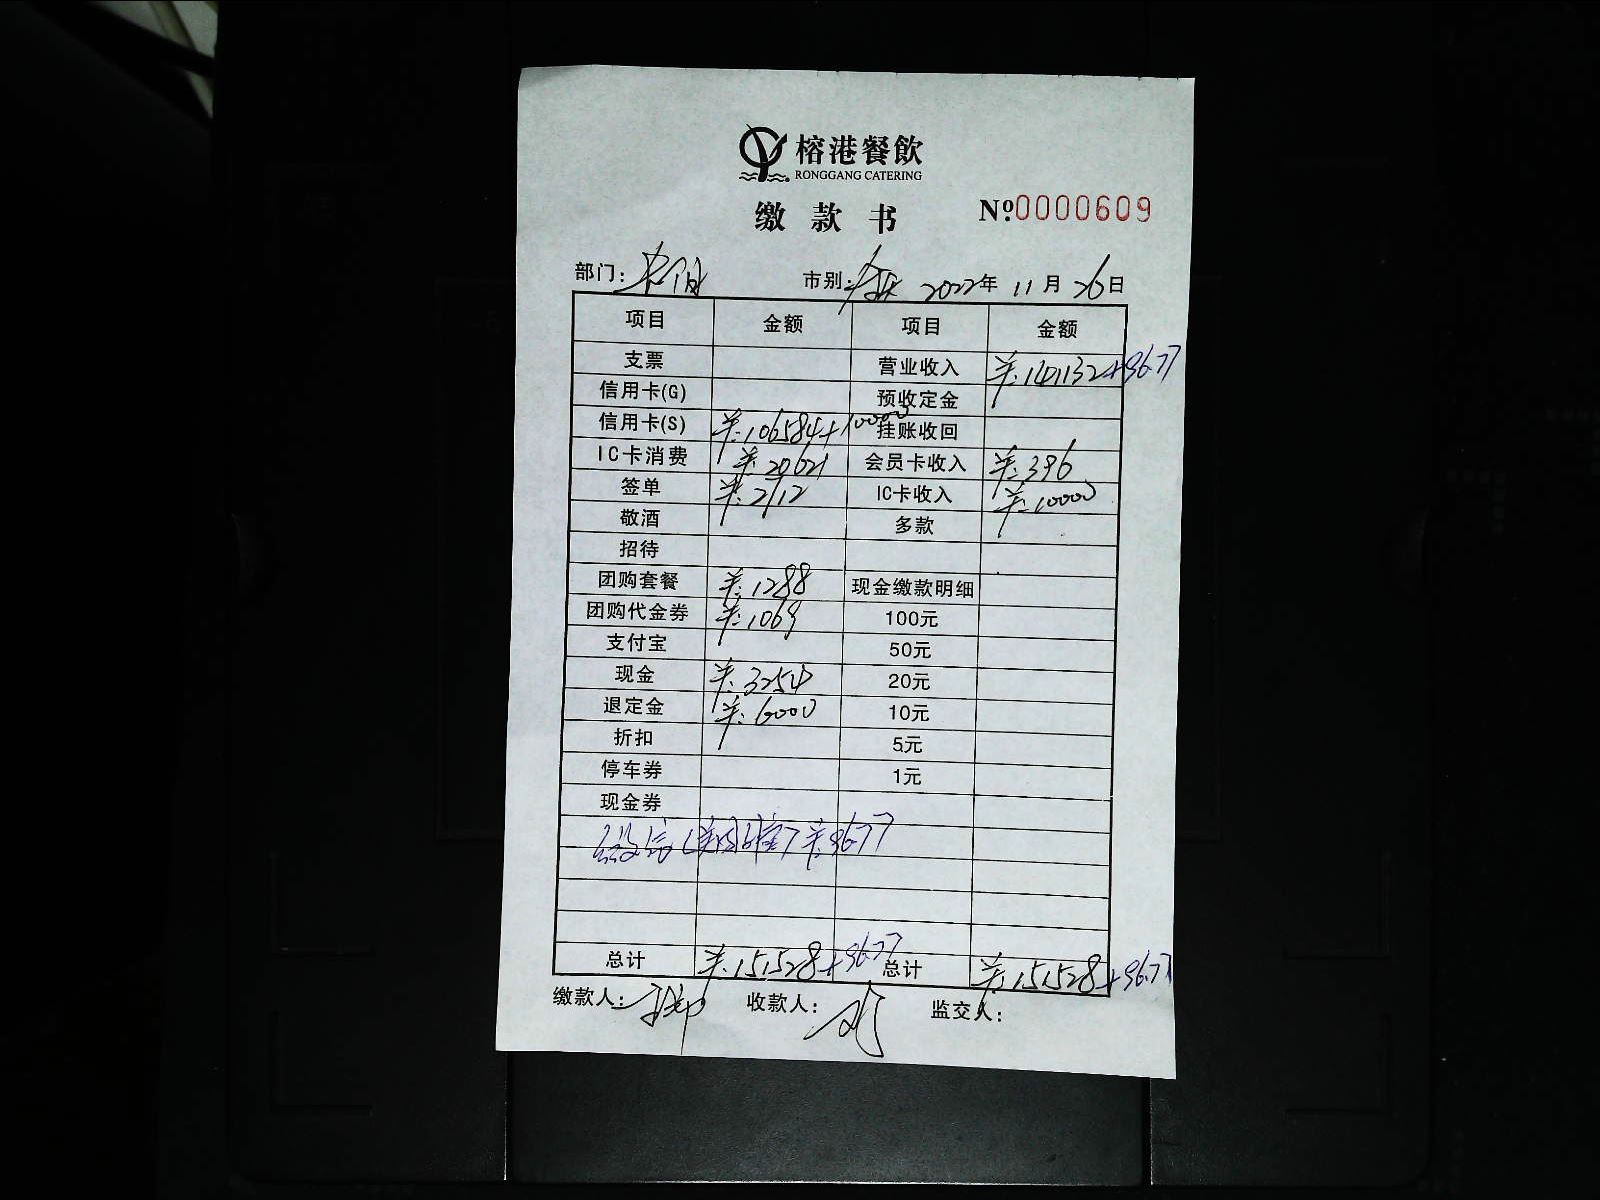 榕港餐飲
RONGGANG CATERING
缴款书 Nº:0000609
部门: 市别: 2022年 11月 26日
项目 金额 项目 金额
支票 营业收入 羊:141132+9677
信用卡(G) 预收定金
信用卡(S) 羊:106584+10000 挂账收回
IC卡消费 羊:20621 会员卡收入 羊:396
签单 羊:2712 IC卡收入 羊:10000
敬酒 多款
招待
团购套餐 羊:1288 现金缴款明细
团购代金券 羊:1069 100元
支付宝 50元
现金 羊:3254 20元
退定金 羊:6000 10元
折扣 5元
停车券 1元
现金券
9677
总计 羊:151528+9677 总计 羊:151528+9677
缴款人: 收款人: 监交人: